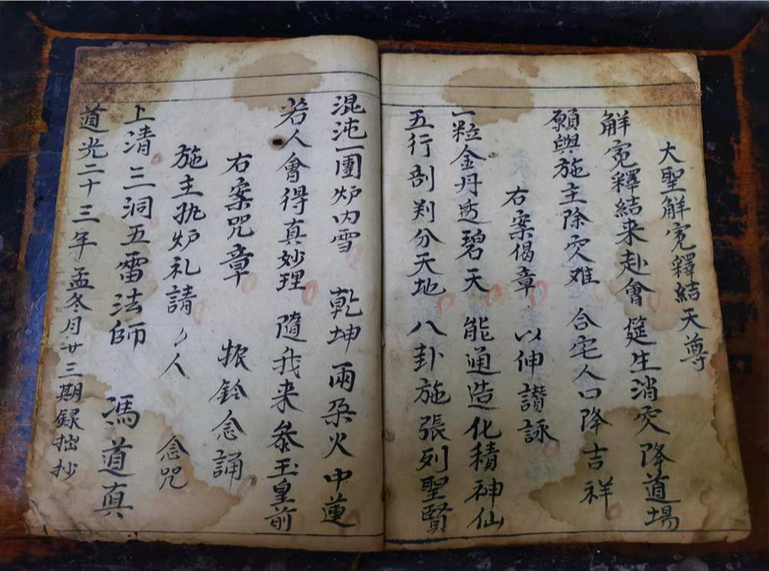 大聖解冤釋結天尊
解冤釋結来赴會 筵生消灾降道場
願與施主除灾难 合宅人口降吉祥
右案偈章 以伸讃詠
一粒金丹透碧天 能通造化積神仙
五行剖判分天地 八卦施張列聖賢
混沌一團炉内雪 乾坤兩朶火中蓮
若人會得真妙理 隨我来叅玉皇前
右案咒章 振鈴念誦
施主执炉礼請 人 念咒
上清三洞五雷法師 馮道真
道光二十三年孟冬月廿三期録拙抄